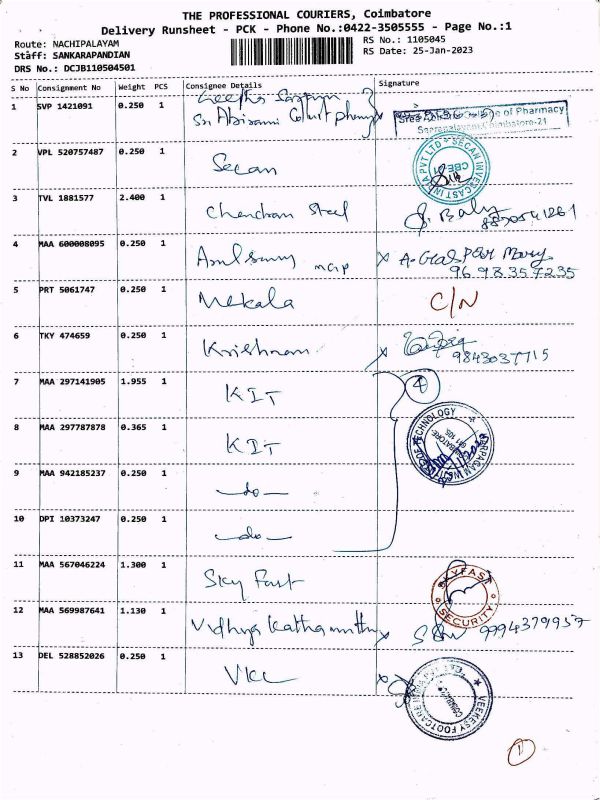 THE PROFESSIONAL COURIERS, Coimbatore
Delivery Runsheet - PCK - Phone No.:0422-3505555 - Page No.:1
Route: NACHIPALAYAM
Staff: SANKARAPANDIAN
DRS No.: DCJB110504501
RS No.: 1105045
RS Date: 25-Jan-2023
S No Consignment No Weight PCS Consignee Details Signature
1 SVP 1421091 0.250 1
of Pharmacy
Coimbatore-21
2 VPL 520757487 0.250 1 Secan
SECAN INVECAST IN A PVT LTD CBE 21
3 TVL 1881577 2.400 1 Chandran Steel
4 MAA 600008095 0.250 1
9698357235
5 PRT 5061747 0.250 1 Mekala C/N
6 TKY 474659 0.250 1 Krishnan
9843037715
7 MAA 297141905 1.955 1 KIT 4
8 MAA 297787878 0.365 1 KIT
TECHNOLOGY
9 MAA 942185237 0.250 1 -do-
10 DPI 10373247 0.250 1 -do-
11 MAA 567046224 1.300 1 Sky Fast
SKYFAST SECURITY
12 MAA 569987641 1.130 1 9994379957
13 DEL 528852026 0.250 1 VKC
VEEKESY FOOTCARE
1